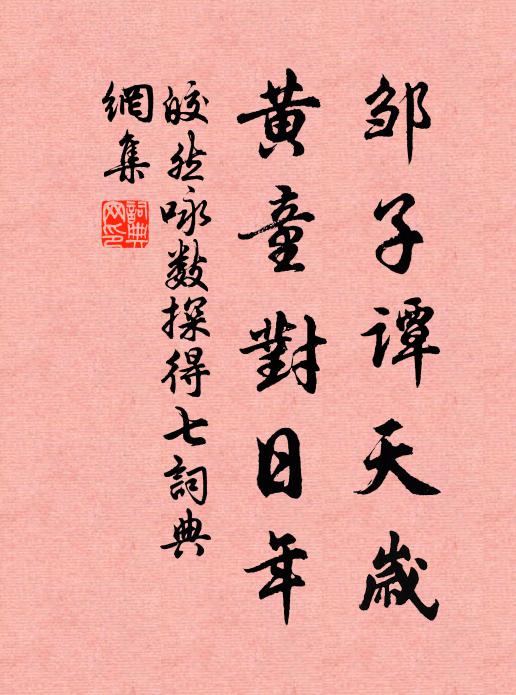 邹子譚天歲
黃童對日年
皎然咏數探得七詞典
網集
詞典網印